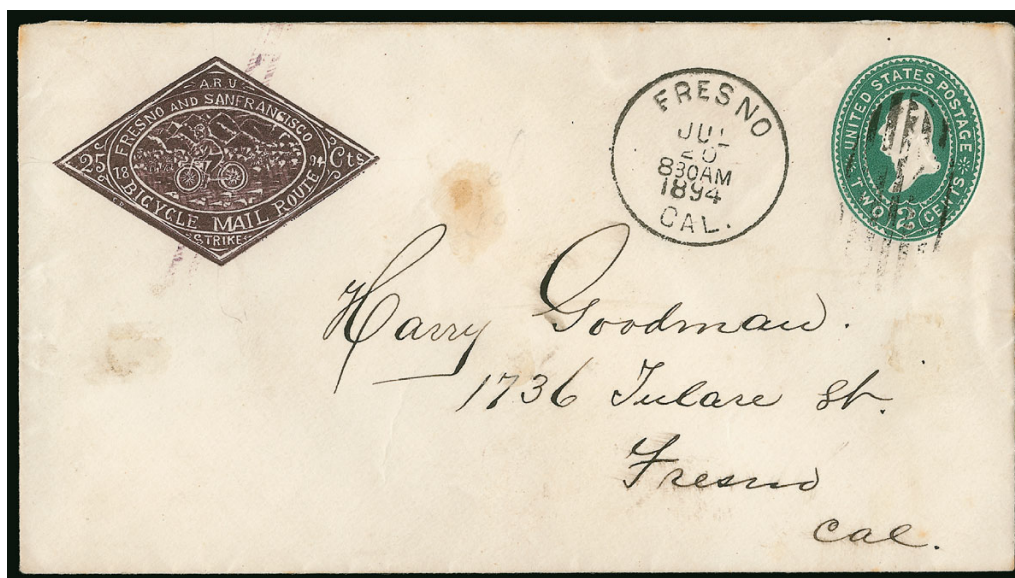 A.R.U.
FRESNO AND SANFRANCISCO
25 18 94 Cts
BICYCLE MAIL ROUTE
STRIKE
FRESNO
JUL
20
830AM
1894
CAL.
UNITED STATES POSTAGE
TWO 2 CENTS
Harry Goodman.
1736 Tulare St.
Fresno
Cal.